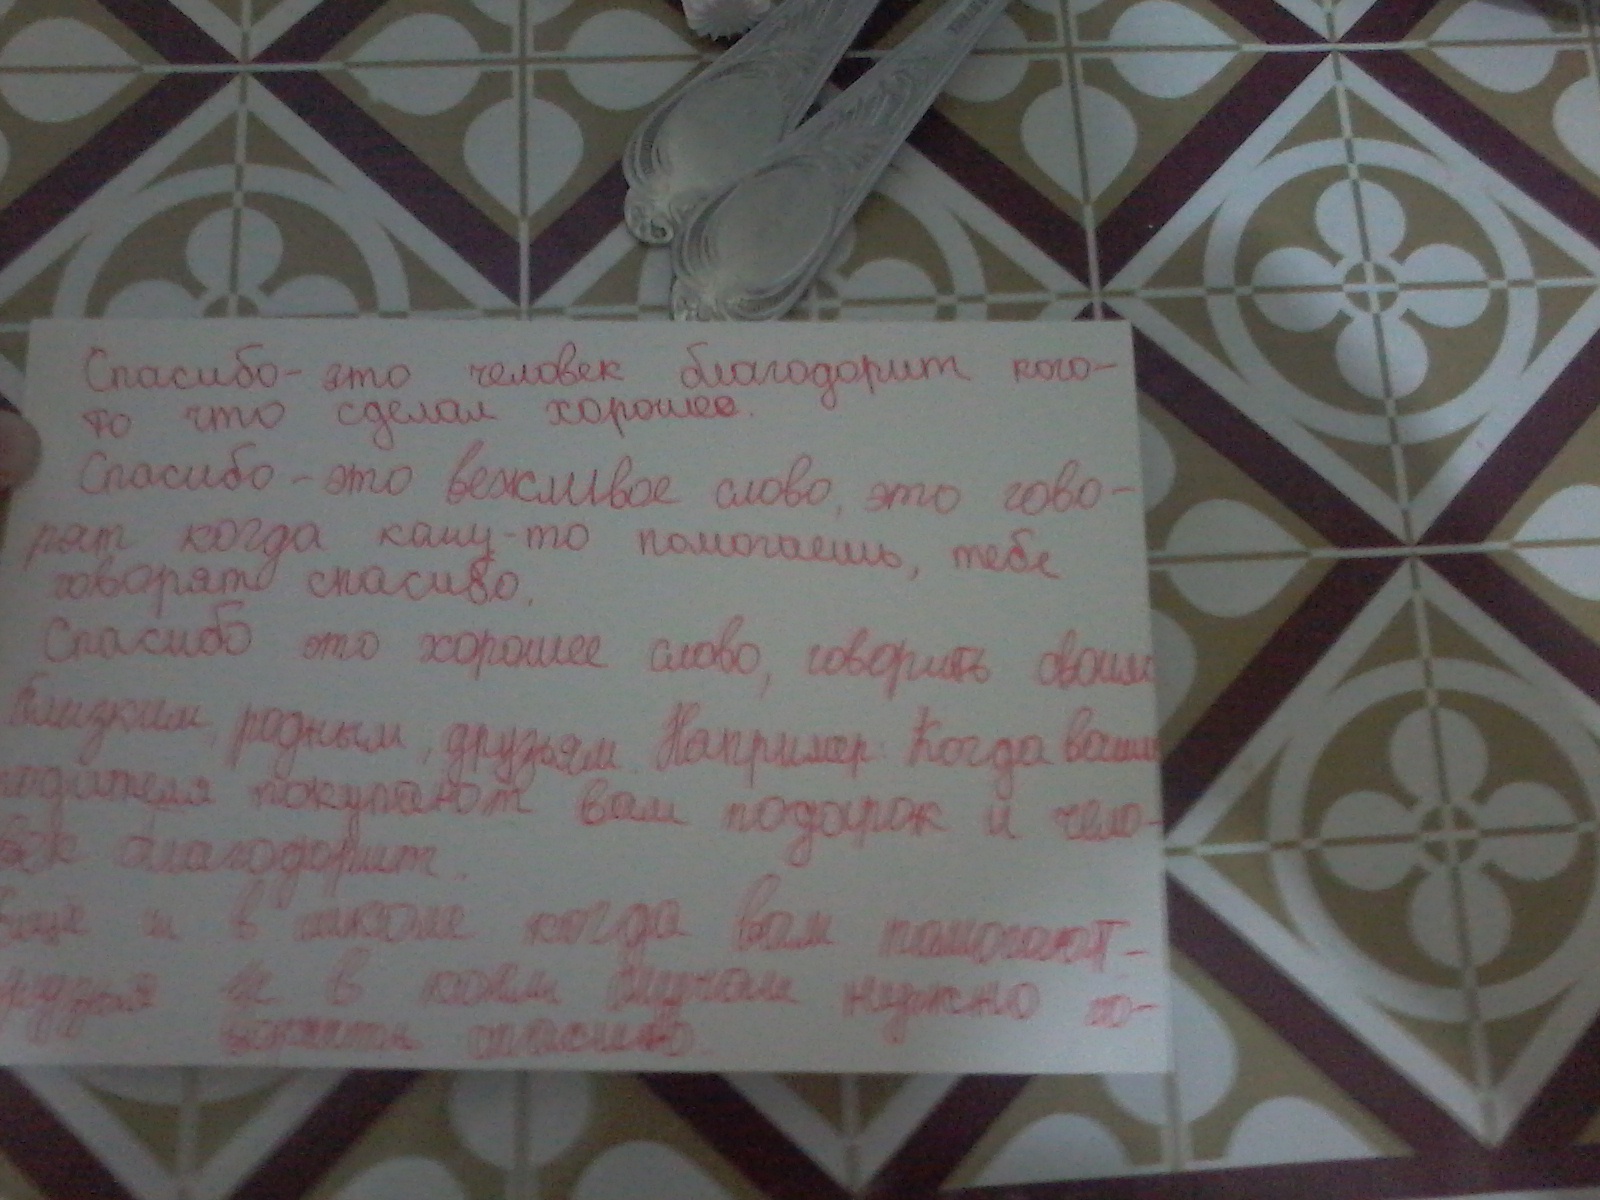 Спасибо- это человек благодорит кого-
то что сделал хорошее.
Спасибо-это вежливое слово, это гово-
рят когда каму-то помогаешь, тебе
говорят спасибо.
Спасибо это хорошее слово, говорить своим
близким, родным, друзьям. Например: Когда ваши
родителя покупают вам подарок и чело-
век благодорит.
Еще и в школе когда вам помогают-
друзья и в коём случаи нужно го-
ворить спасибо.